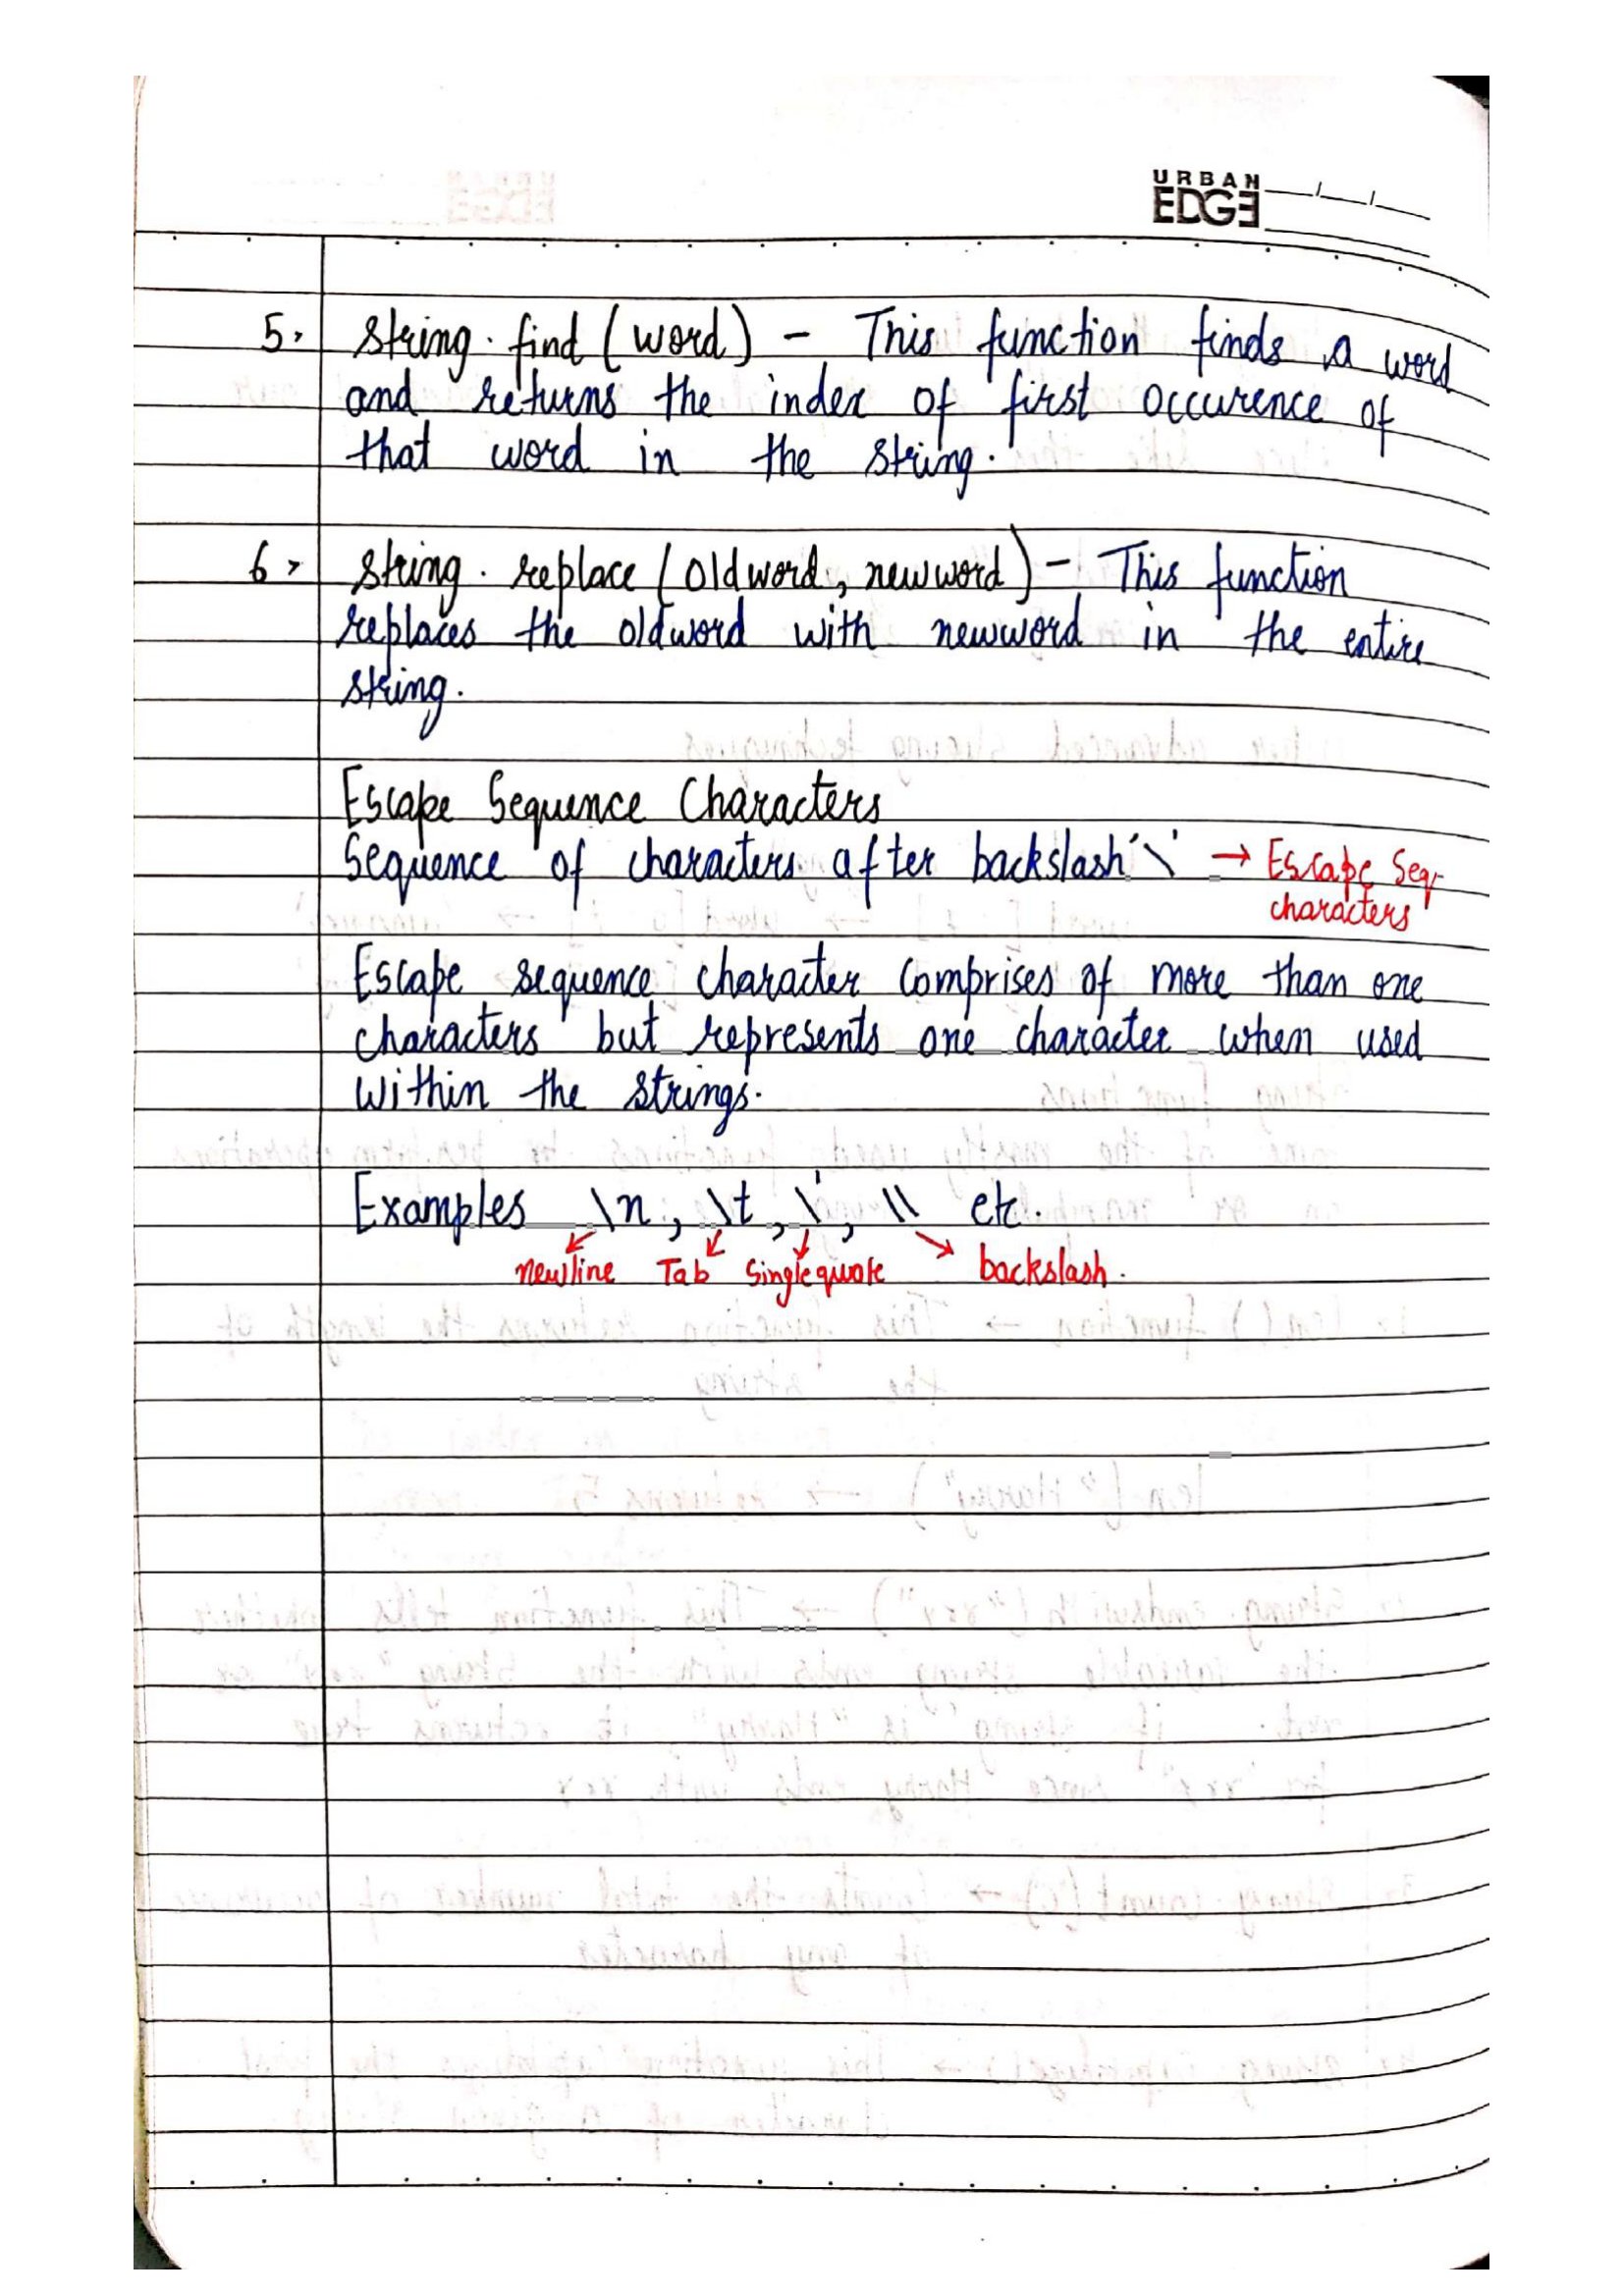 URBAN
EDGE
5. string.find(word) - This function finds a word
and returns the index of first occurence of
that word in the string.
6. string.replace(oldword, newword) - This function
replaces the oldword with newword in the entire
string.
Escape Sequence Characters
Sequence of characters after backslash '\' → Escape Seq.
characters
Escape sequence character comprises of more than one
characters but represents one character when used
within the strings.
Examples \n, \t, \', \\ etc.
newline Tab Singlequote backslash.